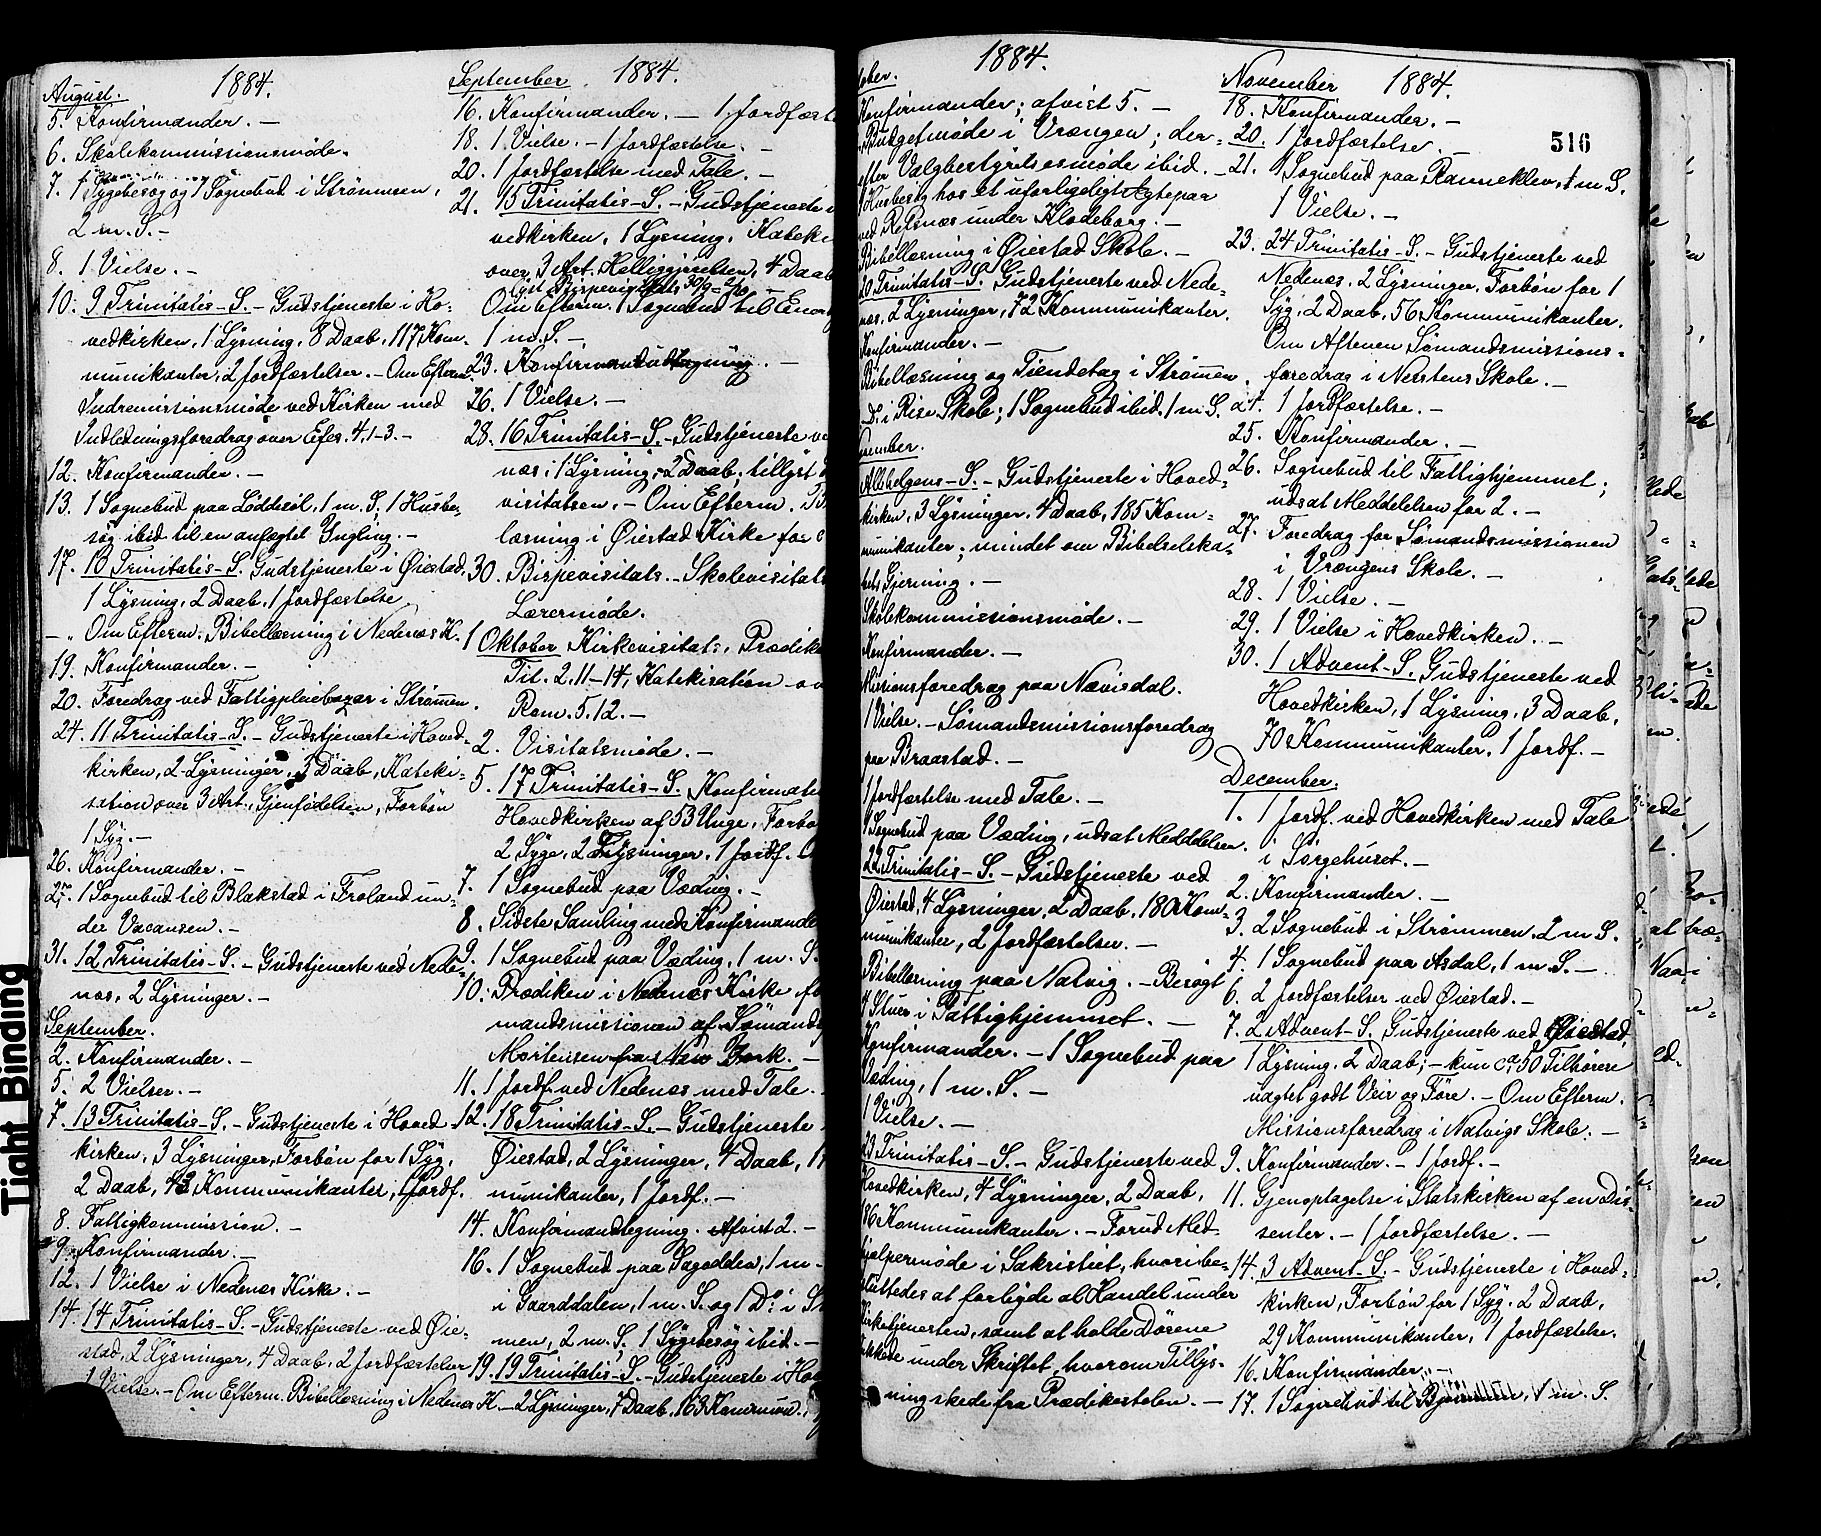 August. 1884.
5. Konfirmander. —
6. Skolekommissionsmøde.
7. 1 Sygebesøg og 1 Sognebud i Strømmen,
2 m. S. —
8. 1 Vielse. —
10. 9 Trinitatis-S. — Gudstjeneste i Ho-
vedkirken, 1 Lysning, 8 Daab, 117 Kom-
munikanter, 2 Jordfæstelser. — Om Efterm.
Indremissionsmøde ved Kirken med
Indledningsforedrag over Efes. 4, 1-3. —
12. Konfirmander. —
13. 1 Sognebud paa Løddesøl, 1 m. S. 1 Husbe-
søg ibid. til en anfægtet Yngling. —
17. 10 Trinitatis-S. Gudstjeneste i Øiestad,
1 Lysning, 2 Daab, 1 Jordfæstelse
— „ Om Efterm. Bibellæsning i Nedenæs K.
19. Konfirmander. —
20. Foredrag ved Fattigpleiebazar i Strømmen.
24. 11 Trinitatis-S. — Gudstjeneste i Hoved-
kirken, 2 Lysninger, 3 Daab, Kateki-
sation over 3 Art., Gjenfødelsen, Forbøn
1 Syg. —
26. Konfirmander. —
27. 1 Sognebud til Blakstad i Froland un-
der Vacansen. —
31. 12 Trinitatis-S. — Gudstjeneste ved Nede-
næs, 2 Lysninger. —
September.
2. Konfirmander. —
5. 2 Vielser. —
7. 13 Trinitatis-S. — Gudstjeneste i Hoved-
kirken, 3 Lysninger, Forbøn for 1 Syg,
2 Daab, 43 Kommunikanter, 1 Jordf.
8. Fattigkommission. —
9. Konfirmander. —
12. 1 Vielse i Nedenæs Kirke. —
14. 14 Trinitatis-S. — Gudstjeneste ved Øie-
stad, 2 Lysninger, 4 Daab, 2 Jordfæstelser
1 Vielse. — Om Efterm. Bibellæsning i Nedenæs K.
September. 1884.
16. Konfirmander. — 1 Jordfæst
18. 1 Vielse. — 1 Jordfæstelse. —
20. 1 Jordfæstelse med Tale. —
21. 15 Trinitatis-S. — Gudstjeneste i
vedkirken, 1 Lysning, Kateki
over 3 Art. Helliggjørelsen, 4 Daab
Lyst Bispevisitats 30/9 - 2/10
Om Efterm. 1 Sognebud til
1 m. S. —
23. —
26. 1 Vielse. —
28. 16 Trinitatis-S. — Gudstjeneste ve
næs, 1 Lysning, 2 Daab, tillyst
visitatsen. — Om Efterm. B
læsning i Øiestad Kirke for
30. Bispevisitats. — Skolevisitats
Lærermøde.
1 Oktober Kirkevisitats, Prædike
Tit. 2, 11-14, Katekisation ov
Rom. 5. 12. —
2. Visitatsmøde. —
5. 17 Trinitatis-S. Konfirmation
Hovedkirken af 53 Unge, Forbø
2 Syge, 2 Lysninger, 1 Jordf.
7. 1 Sognebud paa Væding. —
8. Sidste Samling med Konfirmande
9. 1 Sognebud paa Væding, 1 m. S.
10. Prædiken i Nedenæs Kirke fo
mandsmissionen af Sømands
Mortensen fra New York. —
11. 1 Jordf. ved Nedenæs med Tale.
12. 18 Trinitatis-S. — Gudstjeneste
Øiestad, 2 Lysninger, 4 Daab, 1
munikanter, 1 Jordf. —
14. Konfirmandtegning. Afvist 2. —
16. 1 Sognebud paa Sagodden, 1 m.
i Gaarddalen, 1 m. S. og 1 Do i S
men, 2 m. S. 1 Sygebesøg ibid. —
19. 19 Trinitatis-S. — Gudstjeneste i Hov
— 2 Lysninger, 7 Daab, 163 Kommun.
1884.
ober.
Konfirmander; afvist 5. —
Budgetmøde i Vrængen; der-
efter Valgbestyrelsesmøde ibid. —
Husbesøg hos et uforligeligt Ægtepar
ved Refsnæs under Klodeborg. —
Bibellæsning i Øiestad Skole. —
20 Trinitatis-S. Gudstjeneste ved Nede-
næs, 2 Lysninger, 72 Kommunikanter.
Konfirmander. —
Bibellæsning og Tiendetag i Strømmen.
Do i Rise Skole; 1 Sognebud ibid. 1 m. S.
vember.
Allehelgens-S. — Gudstjeneste i Hoved-
kirken, 3 Lysninger, 4 Daab, 185 Kom-
munikanter; mindet om Bibelselska-
bets Gjerning. —
Skolekommissionsmøde. —
Konfirmander. —
Missionsforedrag paa Næsvisdal.
1 Vielse. — Sømandsmissionsforedrag
paa Braastad. —
1 Jordfæstelse med Tale. —
1 Sognebud paa Væding, udsat Meddelelsen.
22 Trinitatis-S. — Gudstjeneste ved
Øiestad, 4 Lysninger, 2 Daab, 180 Kom-
munikanter, 2 Jordfæstelser. —
Bibellæsning paa Natvig. — Besøgt
4 Stuer i Fattighjemmet. —
Konfirmander. — 1 Sognebud paa
Væding, 1 m. S. —
1 Vielse. —
23 Trinitatis-S. — Gudstjeneste ved
Hovedkirken, 4 Lysninger, 2 Daab,
86 Kommunikanter. — Forud Med-
hjælpermøde i Sakristiet, hvori be-
sluttedes at forbyde al Handel under
Kirketjenesten, samt at holde Dørene
lukkede under Skriftet, hvorom Tillys-
ning skede fra Prædikestolen. —
November 1884.
516
18. Konfirmander. —
20. 1 Jordfæstelse. —
21. 1 Sognebud paa Ranneklev, 1 m S.
1 Vielse. —
23. 24 Trinitatis-S. — Gudstjeneste ved
Nedenæs, 2 Lysninger, Forbøn for 1
Syg, 2 Daab, 56 Kommunikanter.
Om Aftenen Sømandsmissions-
foredrag i Nerstens Skole. —
24. 1 Jordfæstelse. —
25. Konfirmander. —
26. Sognebud til Fattighjemmet;
udsat Meddelelsen for 2. —
27. Foredrag for Sømandsmissionen
i Vrængens Skole. —
28. 1 Vielse. —
29. 1 Vielse i Hovedkirken. —
30. 1 Advent-S. Gudstjeneste ved
Hovedkirken, 1 Lysning, 3 Daab,
70 Kommunikanter, 1 Jordf. —
December.
1. 1 Jordf. ved Hovedkirken med Tale
i Sørgehuset. —
2. Konfirmander. —
3. 2 Sognebud i Strømmen, 2 m S.
4. 1 Sognebud paa Asdal, 1 m. S. —
6. 2 Jordfæstelser ved Øiestad. —
7. 2 Advent-S. Gudstjeneste ved Øiestad,
1 Lysning, 2 Daab; — kun ca 50 Tilhørere
uagtet godt Veir og Føre. — Om Efterm.
Missionsforedrag i Natvigs Skole. —
9. Konfirmander. — 1 Jordf. —
11. Gjenoptagelse i Statskirken af en Dis-
senter. — 1 Jordfæstelse. —
14. 3 Advent-S. — Gudstjeneste i Hoved-
kirken, Forbøn for 1 Syg. 2 Daab,
29 Kommunikanter, 1 Jordfæstelse.
16. Konfirmander. —
17. 1 Sognebud til 1 m. S.
Tight Binding